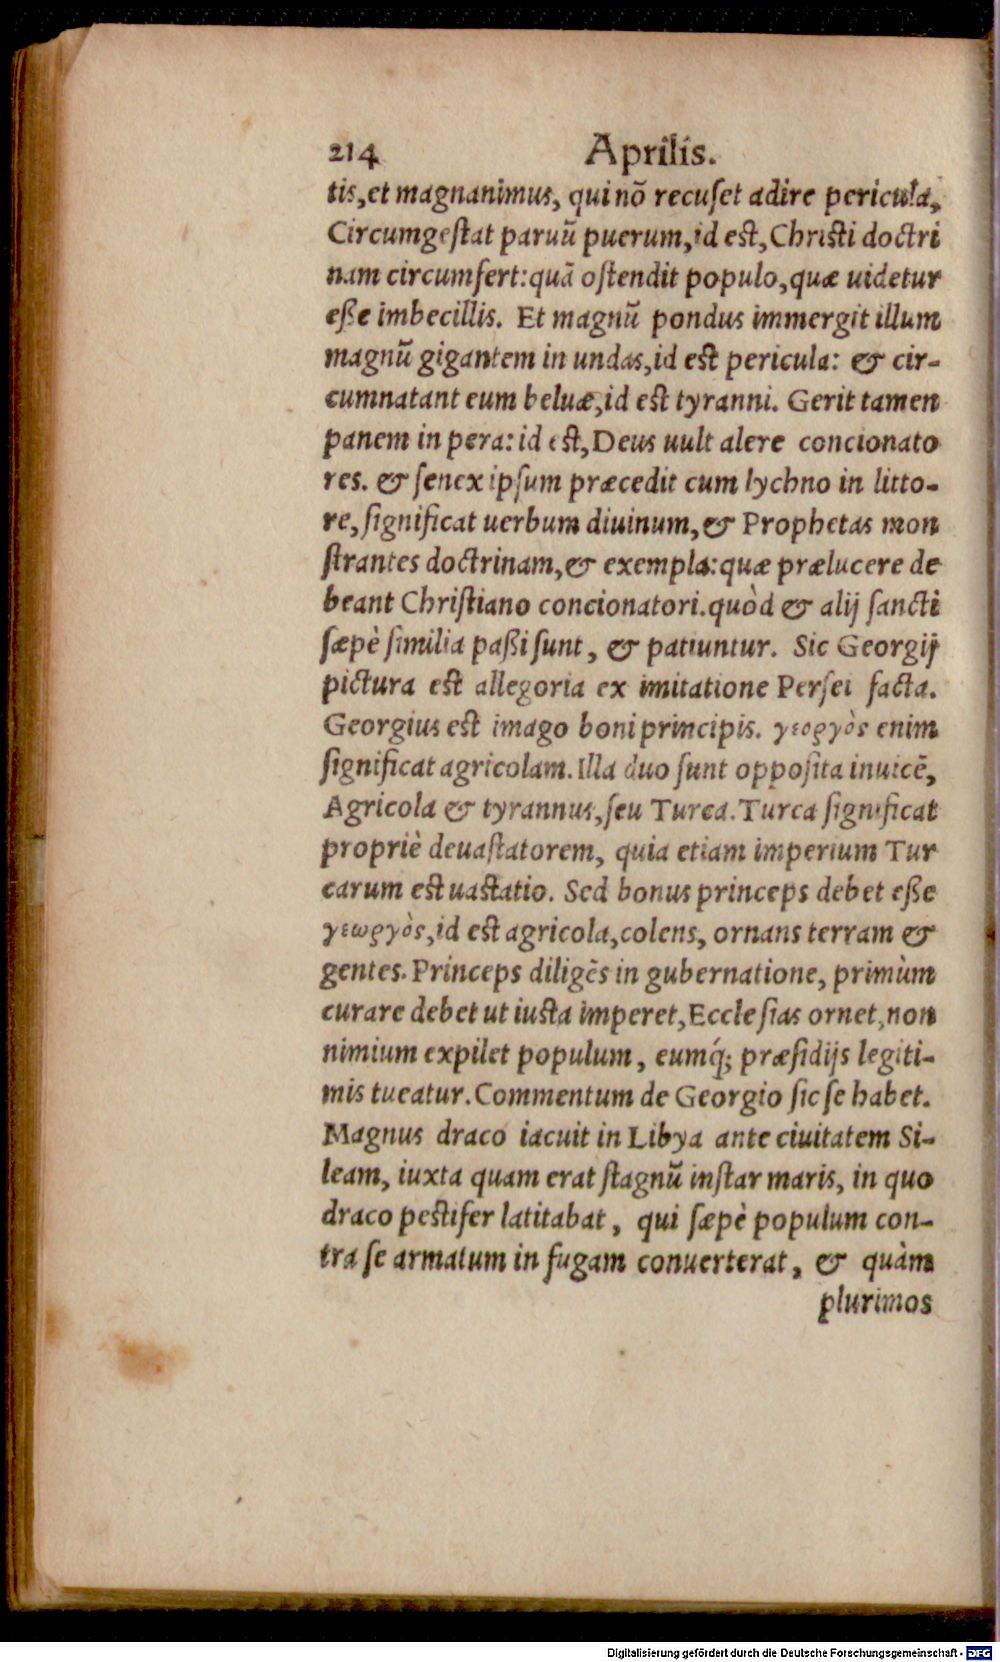 214 Aprilis.
tis, et magnanimus, qui nō recuſet adire pericula,
Circumgeſtat paruū puerum, id eſt, Chriſti doctri
nam circumfert: quā oſtendit populo, quæ uidetur
eſſe imbecillis. Et magnū pondus immergit illum
magnū gigantem in undas, id eſt pericula: & cir-
cumnatant eum beluæ, id eſt tyranni. Gerit tamen
panem in pera: id eſt, Deus uult alere concionato
res. & ſenex ipſum præcedit cum lychno in litto-
re, ſignificat uerbum diuinum, & Prophetas mon
ſtrantes doctrinam, & exempla: quæ prælucere de
beant Chriſtiano concionatori. quòd & alij ſancti
ſæpè ſimilia paßi ſunt, & patiuntur. Sic Georgij
pictura eſt allegoria ex imitatione Perſei facta.
Georgius eſt imago boni principis. γεοργὸς enim
ſignificat agricolam. Illa duo ſunt oppoſita inuicē,
Agricola & tyrannus, ſeu Turca. Turca ſignificat
propriè deuaſtatorem, quia etiam imperium Tur
carum eſt uaſtatio. Sed bonus princeps debet eße
γεωργὸς, id eſt agricola, colens, ornans terram &
gentes. Princeps diligēs in gubernatione, primùm
curare debet ut iuſta imperet, Eccleſias ornet, non
nimium expilet populum, eumq́; præſidijs legiti-
mis tueatur. Commentum de Georgio ſic ſe habet.
Magnus draco iacuit in Libya ante ciuitatem Si-
leam, iuxta quam erat ſtagnū inſtar maris, in quo
draco peſtifer latitabat, qui ſæpè populum con-
tra ſe armatum in fugam conuerterat, & quàm
plurimos
Digitalisierung gefördert durch die Deutsche Forschungsgemeinschaft - DFG